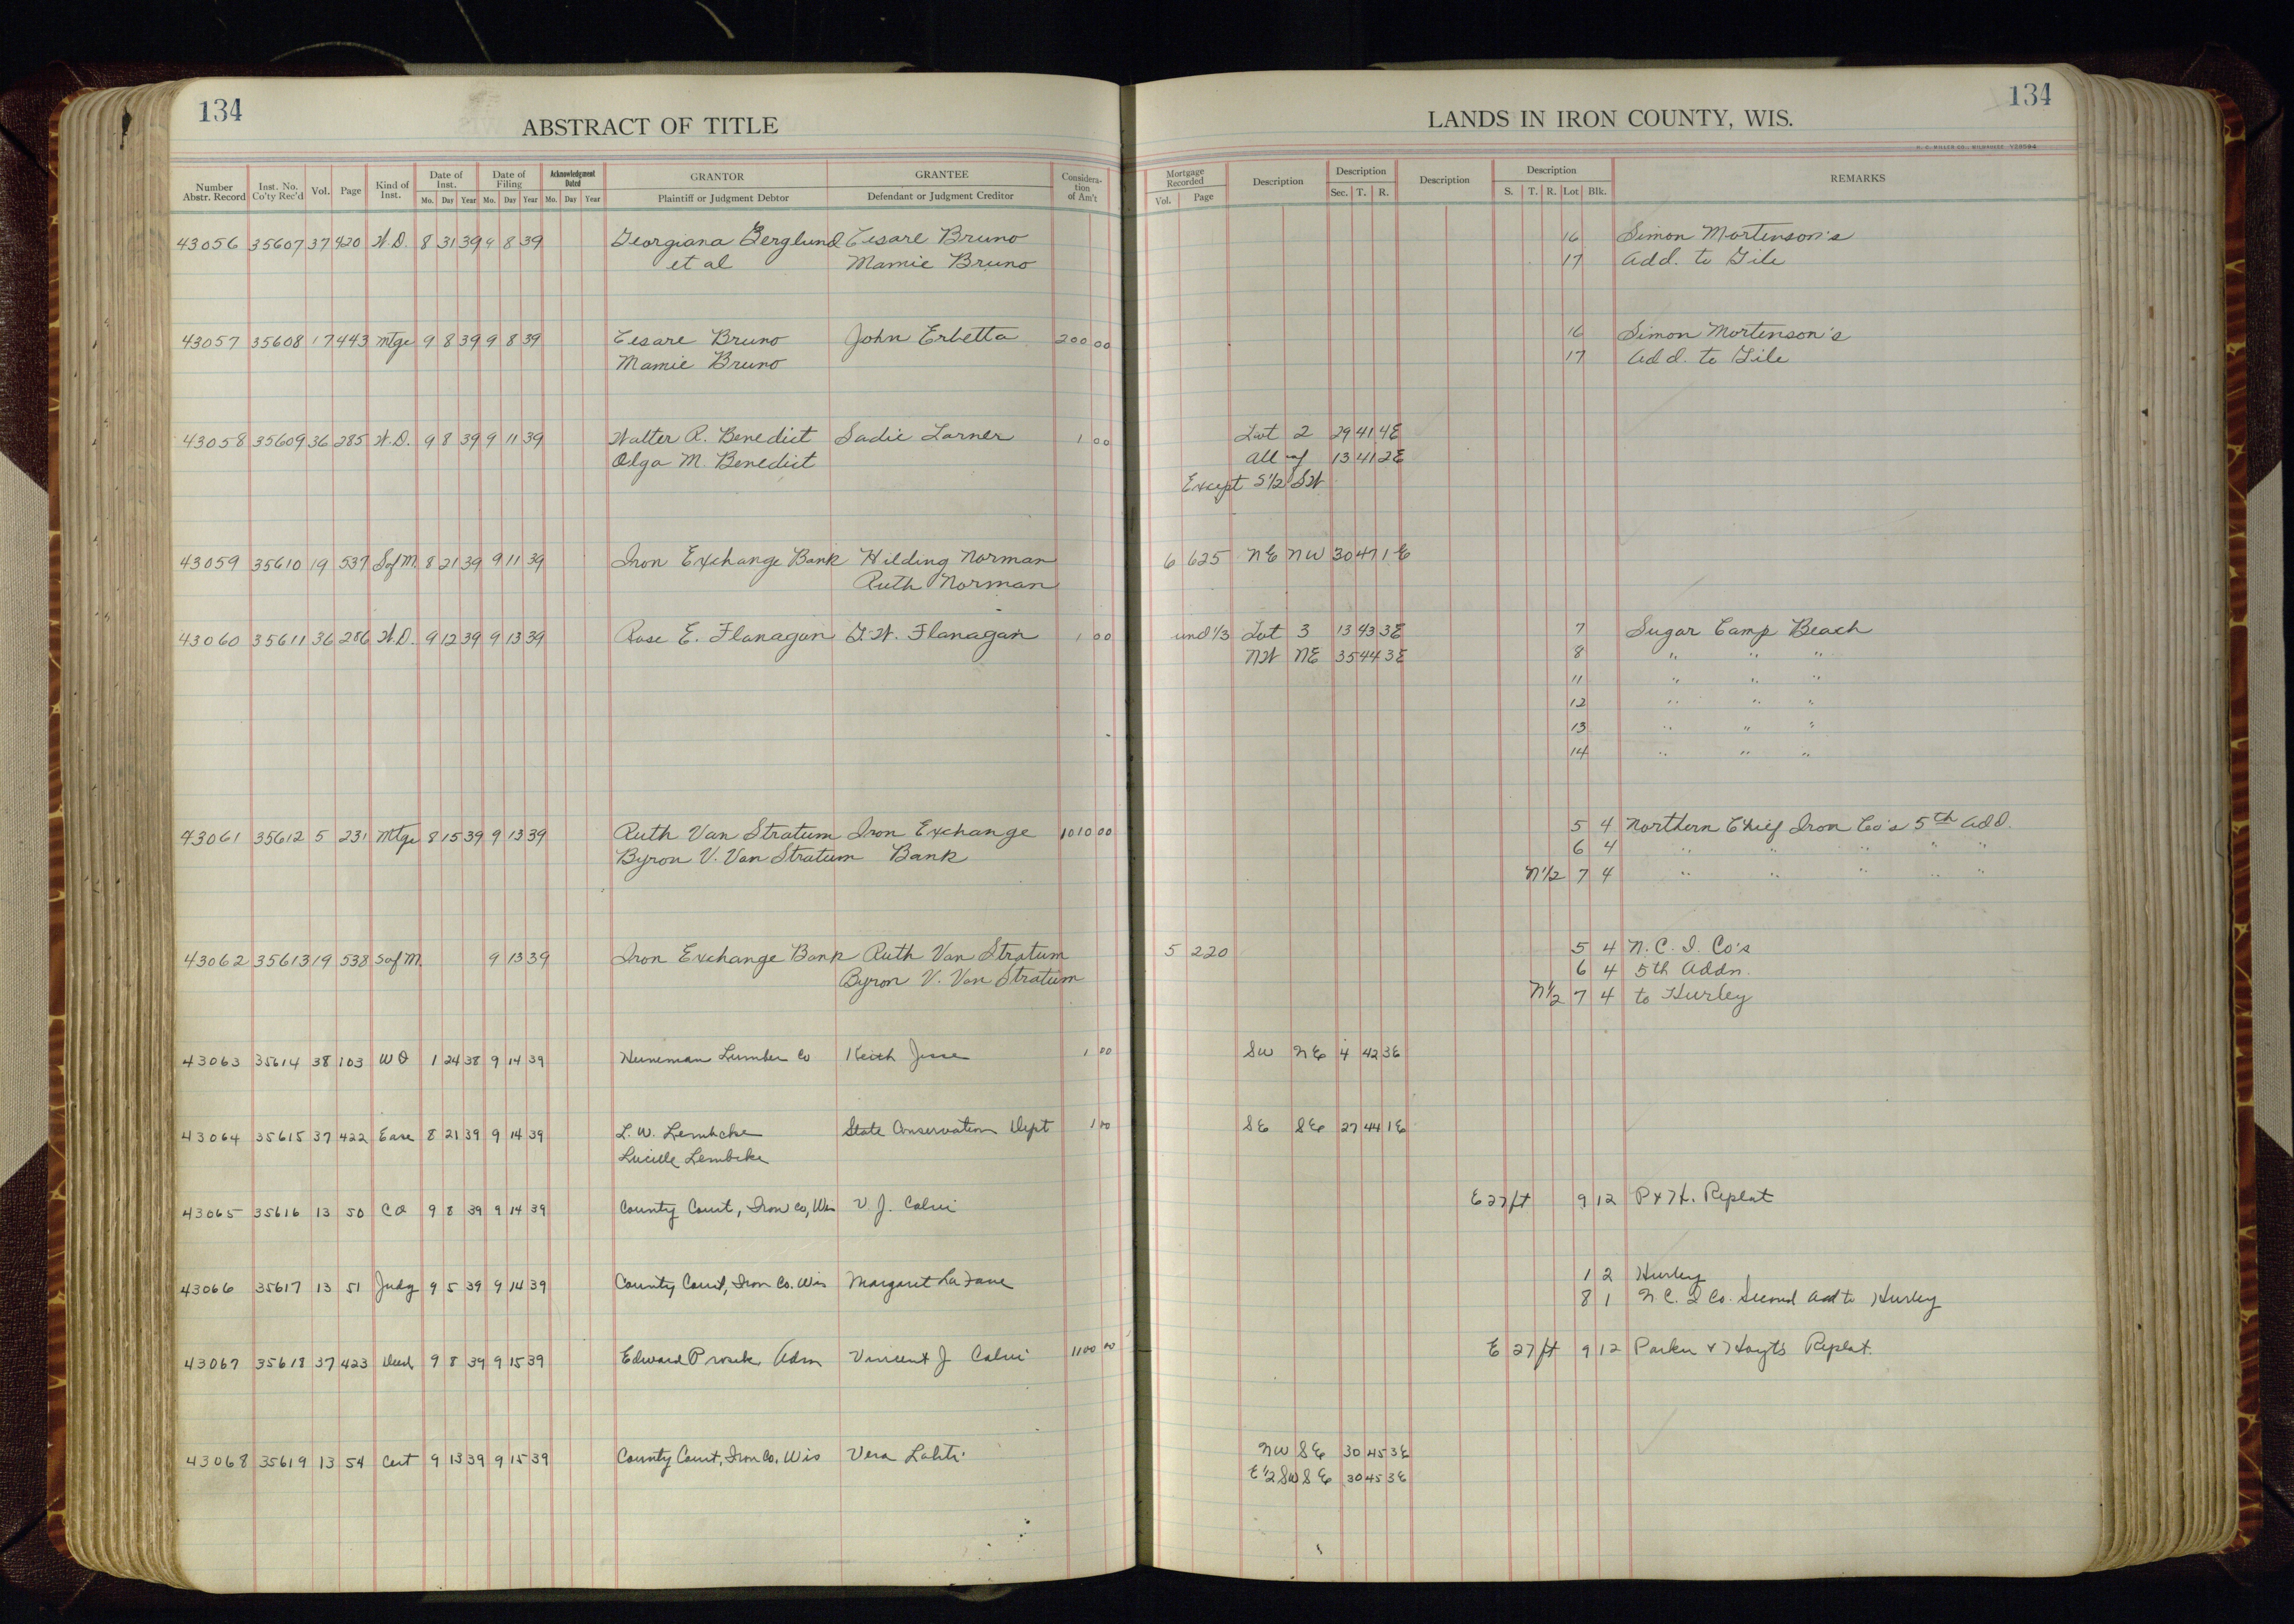 134
ABSTRACT OF TITLE
Number Abstr. Record Inst. No. Co'ty Rec'd Vol. Page Kind of Inst. Date of Inst. Mo. Day Year Date of Filing Mo. Day Year Acknowledgment Dated Mo. Day Year GRANTOR Plaintiff or Judgment Debtor GRANTEE Defendant or Judgment Creditor Consideration of Am't
43056 35607 37 420 W.D. 8 31 39 9 8 39 Georgiana Berglund Cesare Bruno
et al Mamie Bruno
43057 35608 17 443 Mtge 9 8 39 9 8 39 Cesare Bruno John Erbetta 200 00
Mamie Bruno
43058 35609 36 285 W.D. 9 8 39 9 11 39 Walter R. Benedict Sadie Larner 1 00
Olga M. Benedict
43059 35610 19 537 S of M. 8 21 39 9 11 39 Iron Exchange Bank Hilding Norman
Ruth Norman
43060 35611 36 286 W.D. 9 12 39 9 13 39 Rose E. Flanagan G.W. Flanagan 1 00
43061 35612 5 231 Mtge 8 15 39 9 13 39 Ruth Van Stratum Iron Exchange 1010 00
Byron V. Van Stratum Bank
43062 35613 19 538 S of M. 9 13 39 Iron Exchange Bank Ruth Van Stratum
Byron V. Van Stratum
43063 35614 38 103 WD 1 24 38 9 14 39 Heineman Lumber Co Keith Jesse 1 00
43064 35615 37 422 Ease 8 21 39 9 14 39 L. W. Lembcke State Conservation Dept 1 00
Lucille Lembcke
43065 35616 13 50 CO 9 8 39 9 14 39 County Court, Iron Co, Wis V. J. Calvi
43066 35617 13 51 Judg 9 5 39 9 14 39 County Court, Iron Co. Wis Margaret La Fave
43067 35618 37 423 Deed 9 8 39 9 15 39 Edward Prosek Adm Vincent J Calvi 1100 00
43068 35619 13 54 Cert 9 13 39 9 15 39 County Court, Iron Co, Wis Vera Lahti
134
LANDS IN IRON COUNTY, WIS.
H. C. MILLER CO., MILWAUKEE
Mortgage Recorded Vol. Page Description Description Sec. T. R. Description Description S. T. R. Lot Blk. REMARKS
16 Simon Mortenson's
17 Add. to Gile
16 Simon Mortenson's
17 Add. to Gile
Lot 2 29 41 4E
All of 13 41 2E
Except S 1/2 SW
6 625 NE NW 30 47 1E
und 1/3 Lot 3 13 43 3E 7 Sugar Camp Beach
NW NE 35 44 3E 8 " " "
11 " " "
12 " " "
13 " " "
14 " " "
5 4 Northern Chief Iron Co's 5th Add.
6 4 " " " " "
N 1/2 7 4 " " " " "
5 220 5 4 N. C. I. Co's
6 4 5th Addn.
N 1/2 7 4 to Hurley
SW NE 4 42 3E
SE SE 27 44 1E
E 27 ft 9 12 P & H. Replat
1 2 Hurley
8 1 N C. I Co. Second Add to Hurley
E 27 ft 9 12 Parker & Hoyt's Replat.
NW SE 30 45 3E
E 1/2 SW SE 30 45 3E